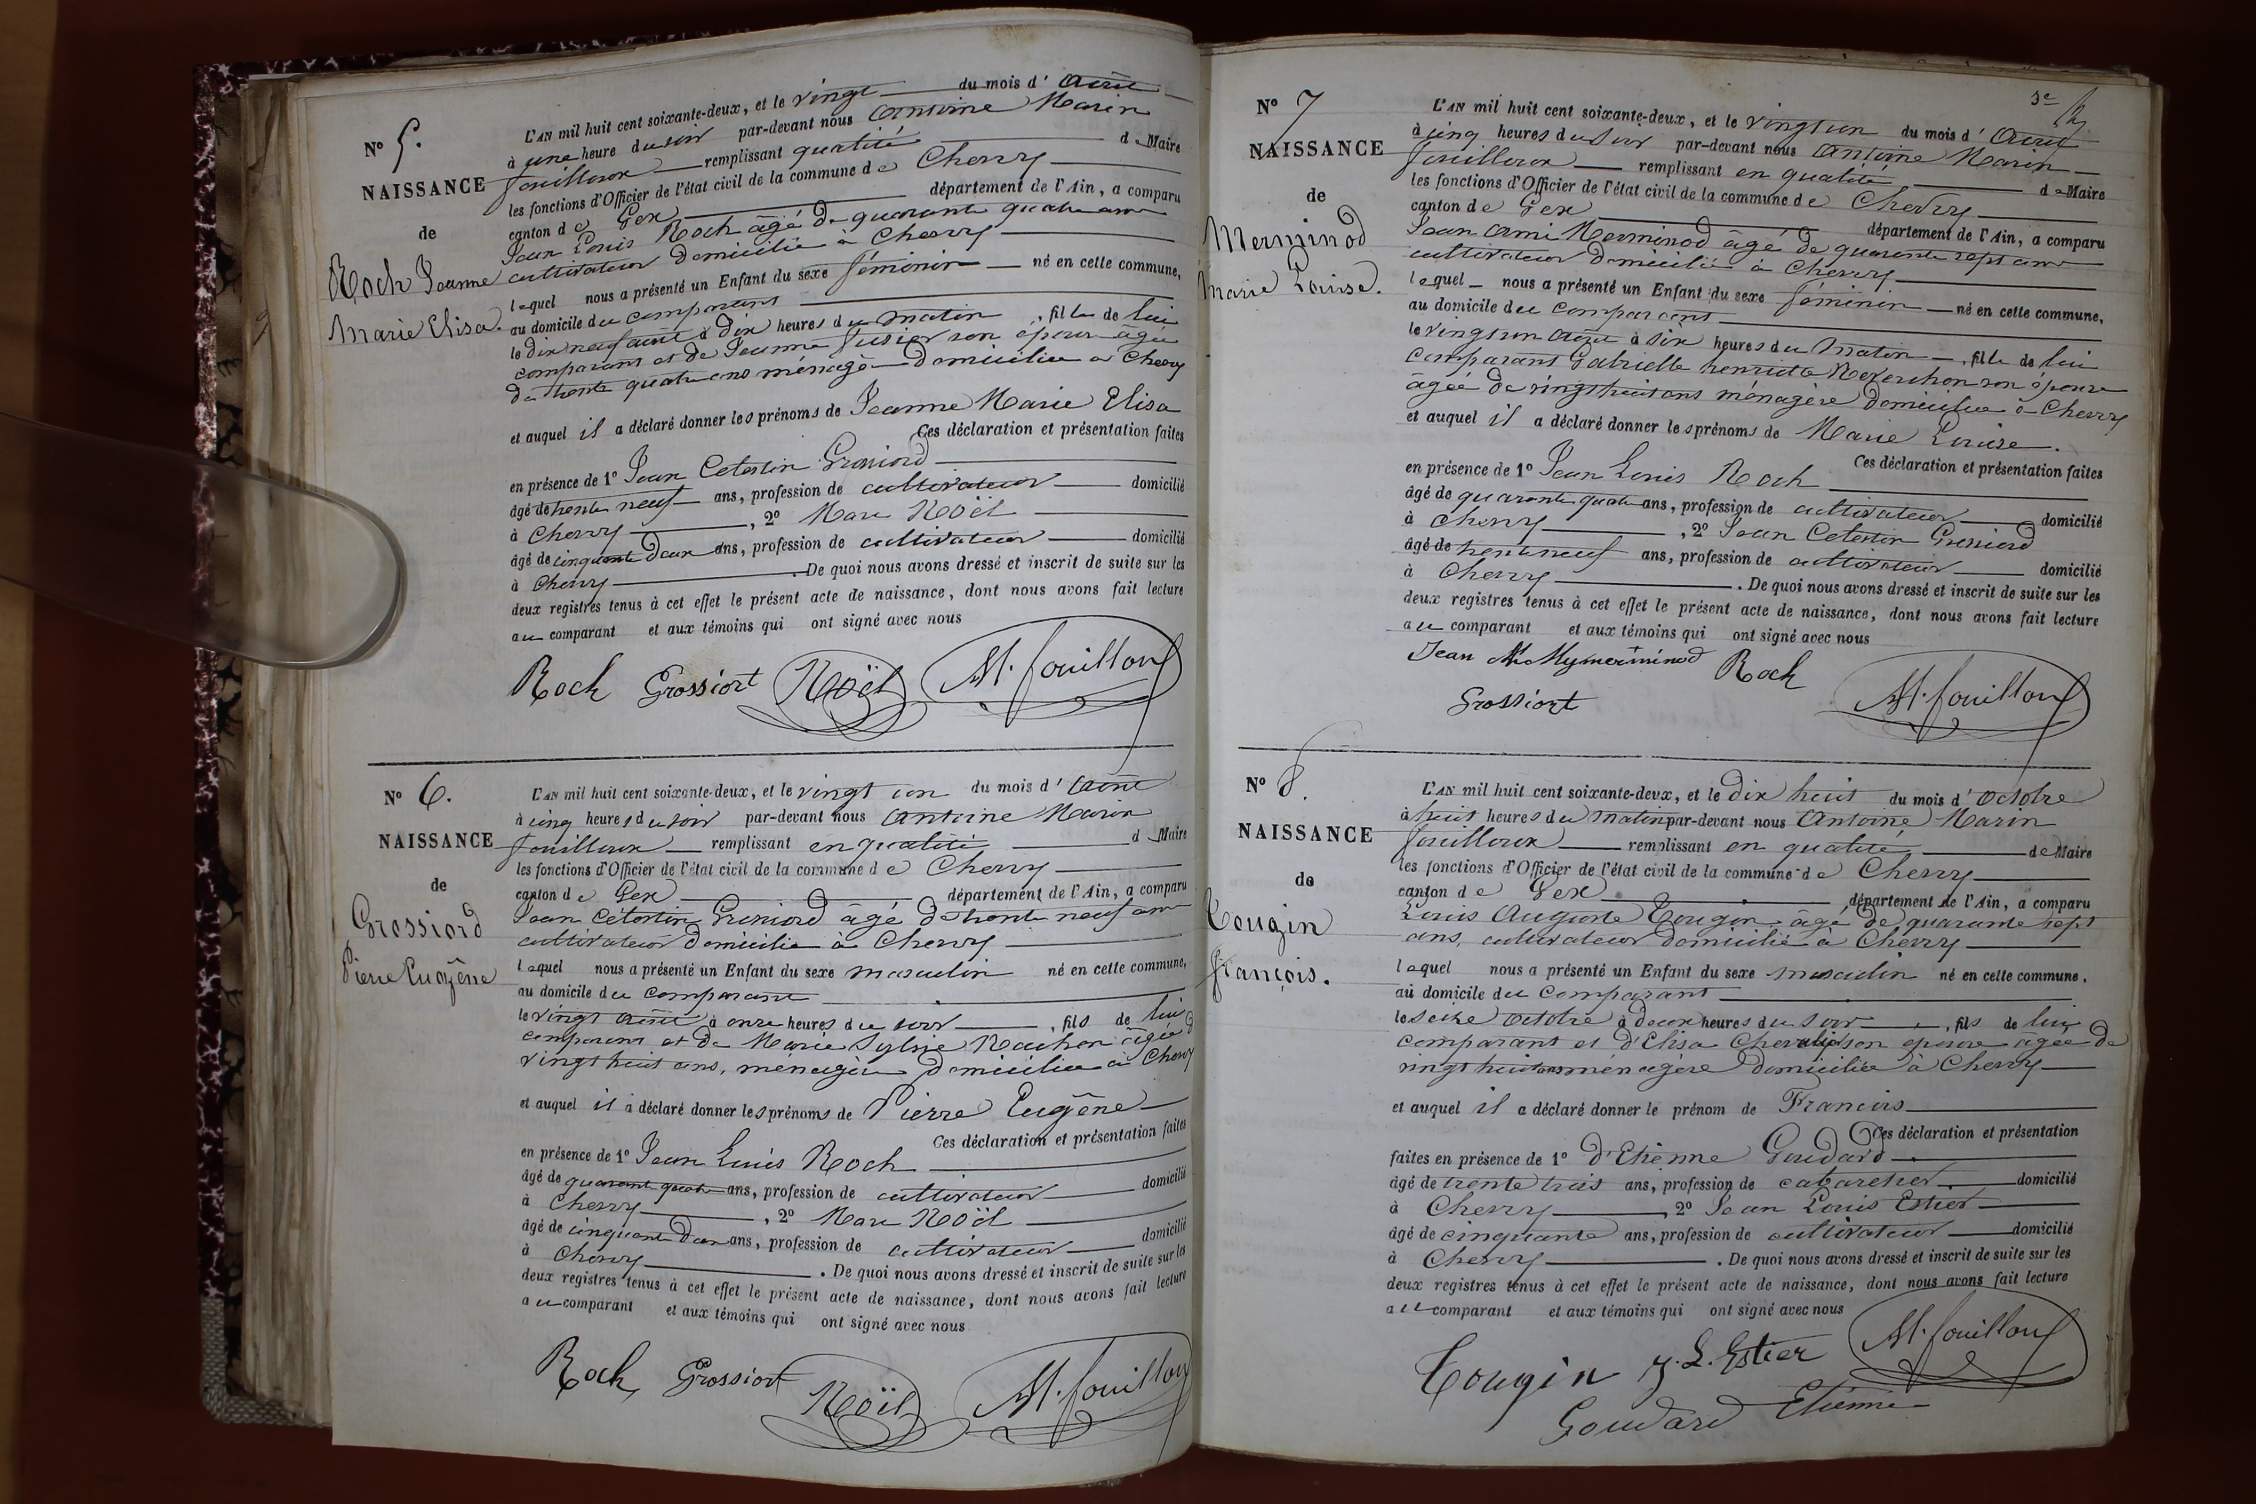 N° 5.
NAISSANCE
de
Roch Jeanne
Marie Elisa.
L'AN mil huit cent soixante-deux, et le vingt du mois d'
à une heure du soir par-devant nous Antoine Marin
fouilloux remplissant qualité de Maire
les fonctions d'Officier de l'état civil de la commune de Chevry
canton de Gex département de l'Ain, a comparu
Jean Louis Roch âgé de quarante quatre ans
cultivateur domicilié à Chevry
lequel nous a présenté un Enfant du sexe féminin né en cette commune,
au domicile du comparant
le dix neuf à dix heures du matin, fille de lui
comparant et de Jeanne son épouse âgée
de trente quatre ans ménagère domiciliée à Chevry
et auquel il a déclaré donner les prénoms de Jeanne Marie Elisa
Ces déclaration et présentation faites
en présence de 1° Jean Celestin Grossiord
âgé de trente neuf ans, profession de cultivateur domicilié
à Chevry, 2° Marc Noël
âgé de cinquante deux ans, profession de cultivateur domicilié
à Chevry. De quoi nous avons dressé et inscrit de suite sur les
deux registres tenus à cet effet le présent acte de naissance, dont nous avons fait lecture
au comparant et aux témoins qui ont signé avec nous
Roch Grossiort Noël M. fouilloux
N° 6.
NAISSANCE
de
Grossiord
Pierre Eugêne
L'AN mil huit cent soixante-deux, et le vingt un du mois d'
à cinq heures du soir par-devant nous Antoine Marin
fouilloux remplissant en qualité de Maire
les fonctions d'Officier de l'état civil de la commune de Chevry
canton de Gex département de l'Ain, a comparu
Jean Célestin Grossiord âgé de trente neuf ans
cultivateur domicilié à Chevry
lequel nous a présenté un Enfant du sexe masculin né en cette commune,
au domicile du comparant
le vingt à onze heures du soir, fils de lui
comparant et de Marie Sylvie Rachon âgée de
vingt huit ans, ménagère domiciliée à Chevry
et auquel il a déclaré donner les prénoms de Pierre Eugêne
Ces déclaration et présentation faites
en présence de 1° Jean Louis Roch
âgé de quarante quatre ans, profession de cultivateur domicilié
à Chevry, 2° Marc Noël
âgé de cinquante deux ans, profession de cultivateur domicilié
à Chevry. De quoi nous avons dressé et inscrit de suite sur les
deux registres tenus à cet effet le présent acte de naissance, dont nous avons fait lecture
au comparant et aux témoins qui ont signé avec nous
Roch Grossiort Noël M. fouilloux
3e
N° 7
NAISSANCE
de
Merminod
Marie Louise.
L'AN mil huit cent soixante-deux, et le vingt un du mois d'
à cinq heures du soir par-devant nous Antoine Marin
fouilloux remplissant en qualité de Maire
les fonctions d'Officier de l'état civil de la commune de Chevry
canton de Gex département de l'Ain, a comparu
Jean Ami Merminod âgé de quarante sept ans
cultivateur domicilié à Chevry
lequel nous a présenté un Enfant du sexe féminin né en cette commune,
au domicile du comparant
le vingt un à six heures du matin, fille de lui
comparant Gabrielle henriette son épouse
âgée de vingt huit ans ménagère domiciliée à Chevry
et auquel il a déclaré donner les prénoms de Marie Louise.
Ces déclaration et présentation faites
en présence de 1° Jean Louis Roch
âgé de quarante quatre ans, profession de cultivateur domicilié
à Chevry, 2° Jean Celestin Grossiord
âgé de trente neuf ans, profession de cultivateur domicilié
à Chevry. De quoi nous avons dressé et inscrit de suite sur les
deux registres tenus à cet effet le présent acte de naissance, dont nous avons fait lecture
au comparant et aux témoins qui ont signé avec nous
Jean Roch
Grossiort M. fouilloux
N° 8.
NAISSANCE
de
Tougin
françois.
L'AN mil huit cent soixante-deux, et le dix huit du mois d'octobre
à huit heures du matin par-devant nous Antoine Marin
fouilloux remplissant en qualité de Maire
les fonctions d'Officier de l'état civil de la commune de Chevry
canton de Gex département de l'Ain, a comparu
Louis Auguste Tougin âgé de quarante sept
ans, cultivateur domicilié à Chevry
lequel nous a présenté un Enfant du sexe masculin né en cette commune.
au domicile du comparant
le seize octobre à deux heures du soir, fils de lui
comparant et d'Elisa Chevalier son épouse agée de
vingt huit ans ménagère domiciliée à Chevry
et auquel il a déclaré donner le prénom de François
Ces déclaration et présentation
faites en présence de 1° d'Etiènne Goudard
âgé de trente trois ans, profession de cabaretier. domicilié
à Chevry, 2° Jean Louis Estier
âgé de cinquante ans, profession de cultivateur domicilié
à Chevry. De quoi nous avons dressé et inscrit de suite sur les
deux registres tenus à cet effet le présent acte de naissance, dont nous avons fait lecture
au comparant et aux témoins qui ont signé avec nous
Tougin J. L. Estier M. fouilloux
Goudard Etiénne